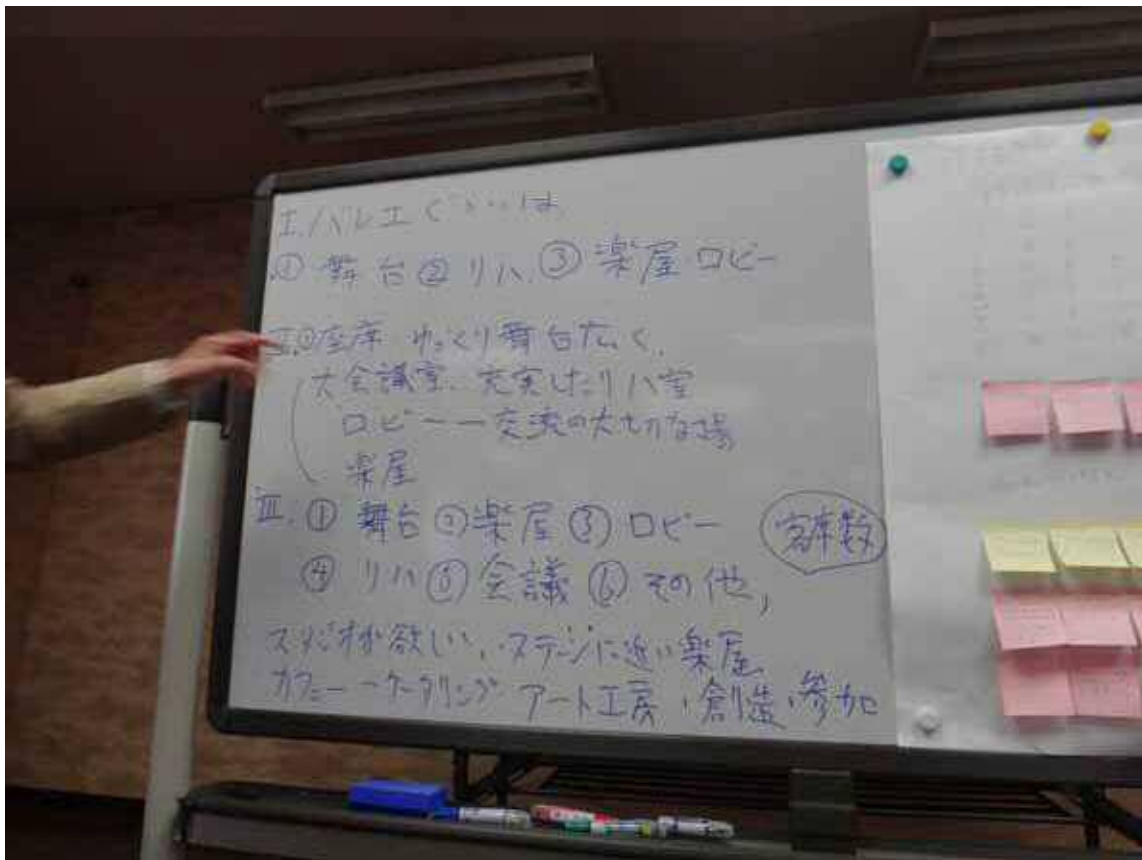 I. バレエぐらいは
① 舞台 ② リハ. ③ 楽屋 ロビー
II. ① 座席 ゆっくり 舞台広く.
大会議室. 充実したリハ室
ロビー ー 交流の大切な場
楽屋
III. ① 舞台 ② 楽屋 ③ ロビー
客席数
④ リハ ⑤ 会議 ⑥ その他,
スタジオが欲しい, ・ステージに近い楽屋
カフェー ーケータリング アート工房・創造・参加